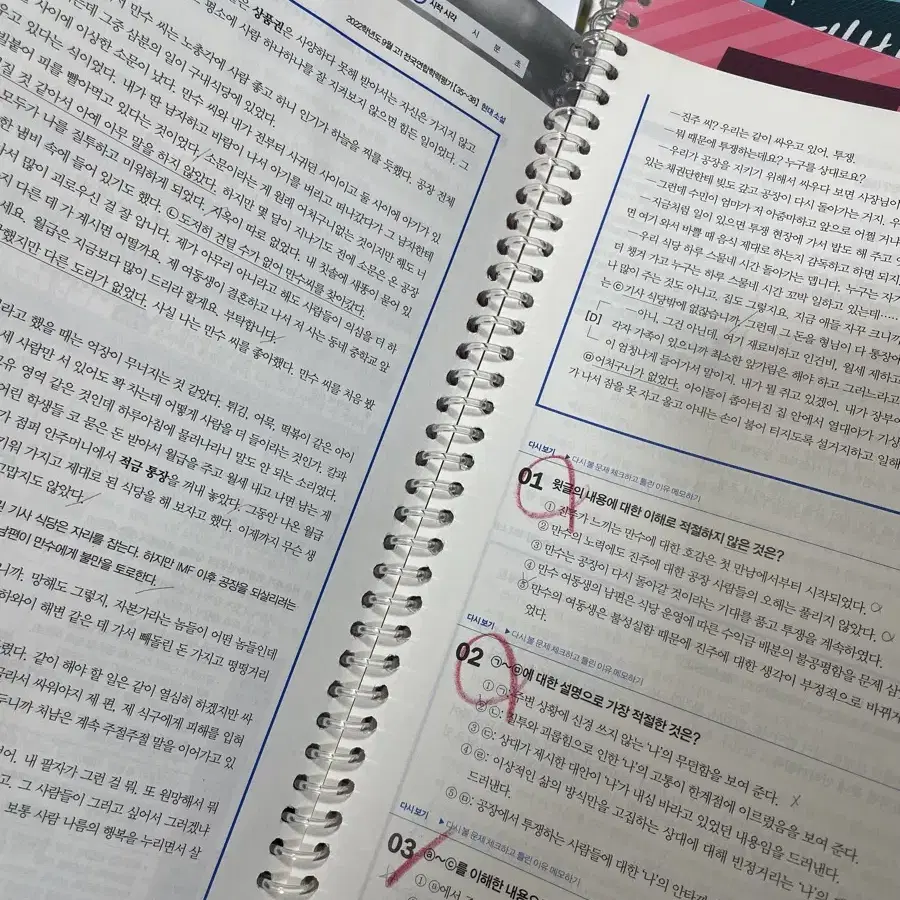 시작 시각
시 분 초
2022학년도 9월 고1 전국연합학력평가 [35~38] 현대 소설
상품권은 사양하다 못해 받아서는 자신은 가지지 않고
사람 하나하나를 잘 지켜보지 않으면 힘든 일이었다. 그
만수 씨는 노총각에 사람 좋고 하니 인기가 하늘을 찌를 듯했다. 공장 전체
그중 삼분의 일이 구내식당에 있었다.
사이에 이상한 소문이 났다. 만수 씨와 내가 전부터 사귀던 사이이고 둘 사이에 아기가
있다는 식이었다. 내가 딴 남자하고 바람이 나서 아기를 버리고 떠나갔다가 그 남자한테
피를 빨아먹고 있다는 것이었다. 소문이라는 게 원래 어처구니없는 것이지만 해도 너
것 같아서 아예 아무 말을 하지 않았다. 하지만 몇 달이 지나기도 전에 소문은 온 공장
모두가 나를 질투하고 미워하게 되었다. 내 칫솔에 새똥이 묻어 있
냄비 속에 들어 있기도 했다. ㉡도저히 견딜 수가 없어 만수씨를 찾아갔다.
많이 괴로우신 걸 잘 압니다. 제가 아무리 아니라고 해도 사람들이 의심을 더 하
다른 데 가 계시면 어떨까요. 제 여동생이 결혼하고 나서 저 사는 동네 중학교 앞
월급은 지금보다 많이 드리라 할게요. 부탁합니다.
다른 도리가 없었다. 사실 나는 만수 씨를 좋아했다. 만수 씨를 처음 봤
라고 했을 때는 억장이 무너지는 것 같았다. 튀김, 어묵, 떡볶이 같은 아이
세 사람만 서 있어도 꽉 차는데 어떻게 사람을 더 들이라는 것인가. 칼과
영역 같은 것인데 하루아침에 물러나라니 말도 안 되는 소리였다.
어린 학생들 코 묻은 돈 받아서 월급을 주고 월세 내고 나면 남는 게
점퍼 안주머니에서 적금 통장을 꺼내 놓았다. 그동안 나온 월급
가지고 제대로 된 식당을 해 보자고 했다. 이제까지 무슨 생
고맙지도 않았다.
기사 식당은 자리를 잡는다. 하지만 IMF 이후 공장을 되살리려는
남편이 만수에게 불만을 토로한다.
니까. 망해도 그렇지, 자본가라는 놈들이 어떤 놈들인데
하와이 해변 같은 데 가서 빼돌린 돈 가지고 떵떵거리
같이 해야 할 일은 같이 열심히 하겠지만 싸
싸워야지 제 편, 제 식구에게 피해를 입혀
처남은 계속 주절주절 말을 이어가고 있
내 팔자가 그런 걸 뭐, 또 원망해서 뭐
그 사람들이 그러고 싶어서 그러겠냐
보통 사람 나름의 행복을 누리면서 살
―진주 씨? 우리는 같이 싸우고 있어, 투쟁.
―뭐 때문에 투쟁하는데요? 누구를 상대로요?
―우리가 공장을 지키기 위해서 싸우다 보면 사장님이
있는 채권단한테 빚도 갚고 공장이 다시 돌아가는 거지. 우
―그런데 수민이 엄마가 저 아줌마하고 앞으로 어쩔 거냐
―지금처럼 일이 있으면 투쟁 현장에 가서 밥도 해 주고
면 여기 와서 바쁠 때 음식 제대로 하는지 감독하고 하면 되지
―우리 식당 하루 스물네 시간 돌아가는 뎁니다. 누구는 자기
더 챙겨 가고 누구는 하루 스물네 시간 꼬박 일하고 있는데……
나 많이 주는 것도 아니고, 집도 그렇지요. 지금 애들 자꾸 크니까
는 ⓒ기사 식당밖에 없잖습니까. 그런데 그 돈을 형님이 다 통장에
[D]
―아니, 그건 아닌데. 여기 재료비하고 인건비, 월세 제하고
각자 가족이 있으니까 최소한 앞가림은 해야 하고 그러느라고
이 엄청나게 들어가서 말이지. 내가 뭘 쥐고 있겠어. 내가 장부
어처구니가 없었다. 아이들이 좁아터진 집 안에서 열대야가 기상
가 나서 잠을 못 자고 울고 아내는 손이 불어 터지도록 설거지하고 일해
다시보기 ▶다시 볼 문제 체크하고 틀린 이유 메모하기
01 윗글의 내용에 대한 이해로 적절하지 않은 것은?
① 진주가 느끼는 만수에 대한 호감은 첫 만남에서부터 시작되었다.
② 만수의 노력에도 진주에 대한 공장 사람들의 오해는 풀리지 않았다.
③ 만수는 공장이 다시 돌아갈 것이라는 기대를 품고 투쟁을 계속하였다.
④ 만수 여동생의 남편은 식당 운영에 따른 수익금 배분의 불공평함을 문제 삼
⑤ 만수의 여동생은 불성실함 때문에 진주에 대한 생각이 부정적으로 바뀌게
었다.
다시보기 ▶다시 볼 문제 체크하고 틀린 이유 메모하기
02 ㉠~㉤에 대한 설명으로 가장 적절한 것은?
① ㉠: 주변 상황에 신경 쓰지 않는 '나'의 무던함을 보여 준다.
② ㉡: 질투와 괴롭힘으로 인한 '나'의 고통이 한계점에 이르렀음을 보여 준다.
③ ㉢: 상대가 제시한 대안이 '나'가 내심 바라고 있었던 내용임을 드러낸다.
④ ㉣: 이상적인 삶의 방식만을 고집하는 상대에 대해 빈정거리는 '나'의
드러낸다.
⑤ ㉤: 공장에서 투쟁하는 사람들에 대한 '나'의 안타까
다시보기 ▶다시 볼 문제 체크하고 틀린 이유 메모하기
03 ⓐ~ⓒ를 이해한 내용으
① ⓐ에서